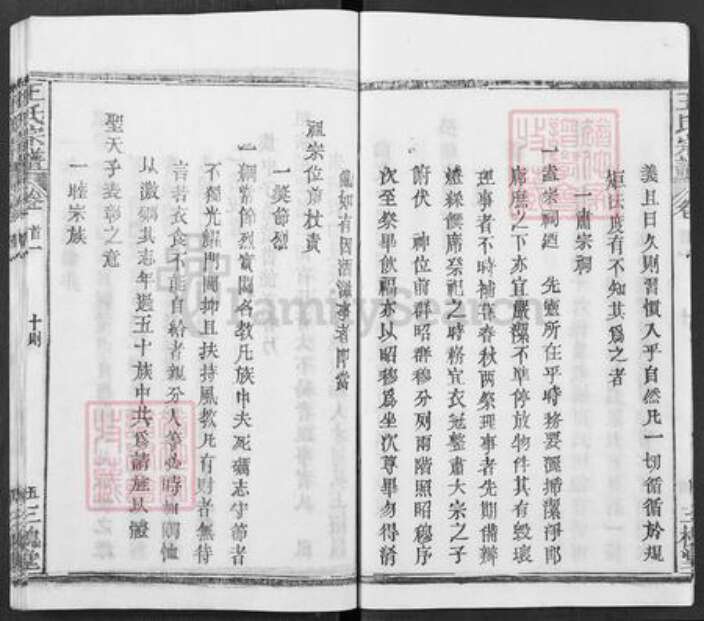 義且日久則習慣入乎自然凡一切循循於規
矩法度有不知其爲之者
一肅宗祠
一蓋宗祠廼　先靈所在乎時務要灑掃潔淨郎
廊廡之下亦宜嚴潔不準停放物件其有毀壞
理事者不時補葺春秋两祭理事者先期備辦
燈綵僎席祭祀之時務宜衣冠整肅大宗之子
俯伏　神位前群昭群穆分列兩階照昭穆序
次至祭畢飲福亦以昭穆爲坐次尊卑勿得淆
祖宗位前杖責
一獎節烈
一綱常節烈實關名教凡族中夫死矢志守節者
不獨光耀門閭抑且扶持風教凡有財者無待
言若衣食不能自給者親分人等必時加賙恤
以激勵其志年過五十族中共爲請旌以體
聖天子表彰之意
一睦宗族
王氏宗譜
卷一
首一
十則
五
三槐堂
FamilySearch